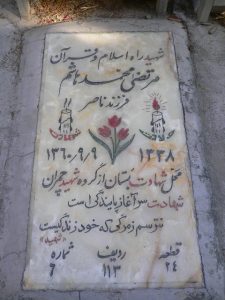 شهید راه اسلام و قرآن
مرتضی محمد هاشم
فرزند ناصر
۱۳۶۰/۹/۹ ۱۳۳۸
محل شهادت بستان از گروه شهید چمران
شهادت سرآغاز پایندگی است
نترسم ز مرگی که خود زندگیست
«شهید»
قطعه ردیف شماره
۲۴ ۱۱۳ ۶